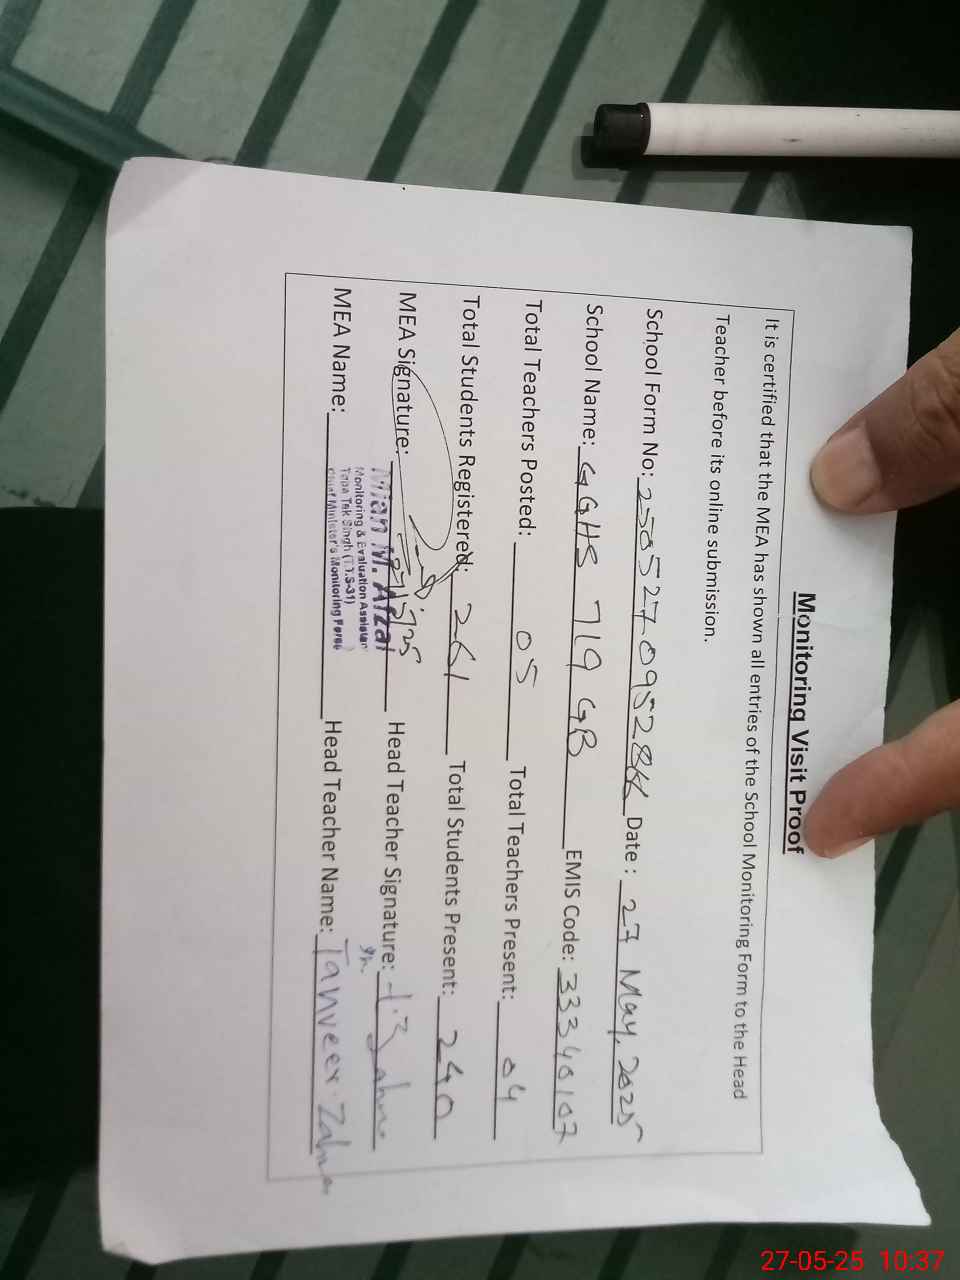 Monitoring Visit Proof
It is certified that the MEA has shown all entries of the School Monitoring Form to the Head
Teacher before its online submission.
School Form No: Date : 27 May, 2025
School Name: GGHS 719 GB EMIS Code: 33340107
Total Teachers Posted: 05 Total Teachers Present: 04
Total Students Registered: 261 Total Students Present: 240
MEA Signature: Head Teacher Signature:
Mian M. Afzal
Monitoring & Evaluation Assistant
Toba Tek Singh (T.T.S-31)
Chief Minister's Monitoring Force
MEA Name: Head Teacher Name: Tanveer Zahra
27-05-25 10:37